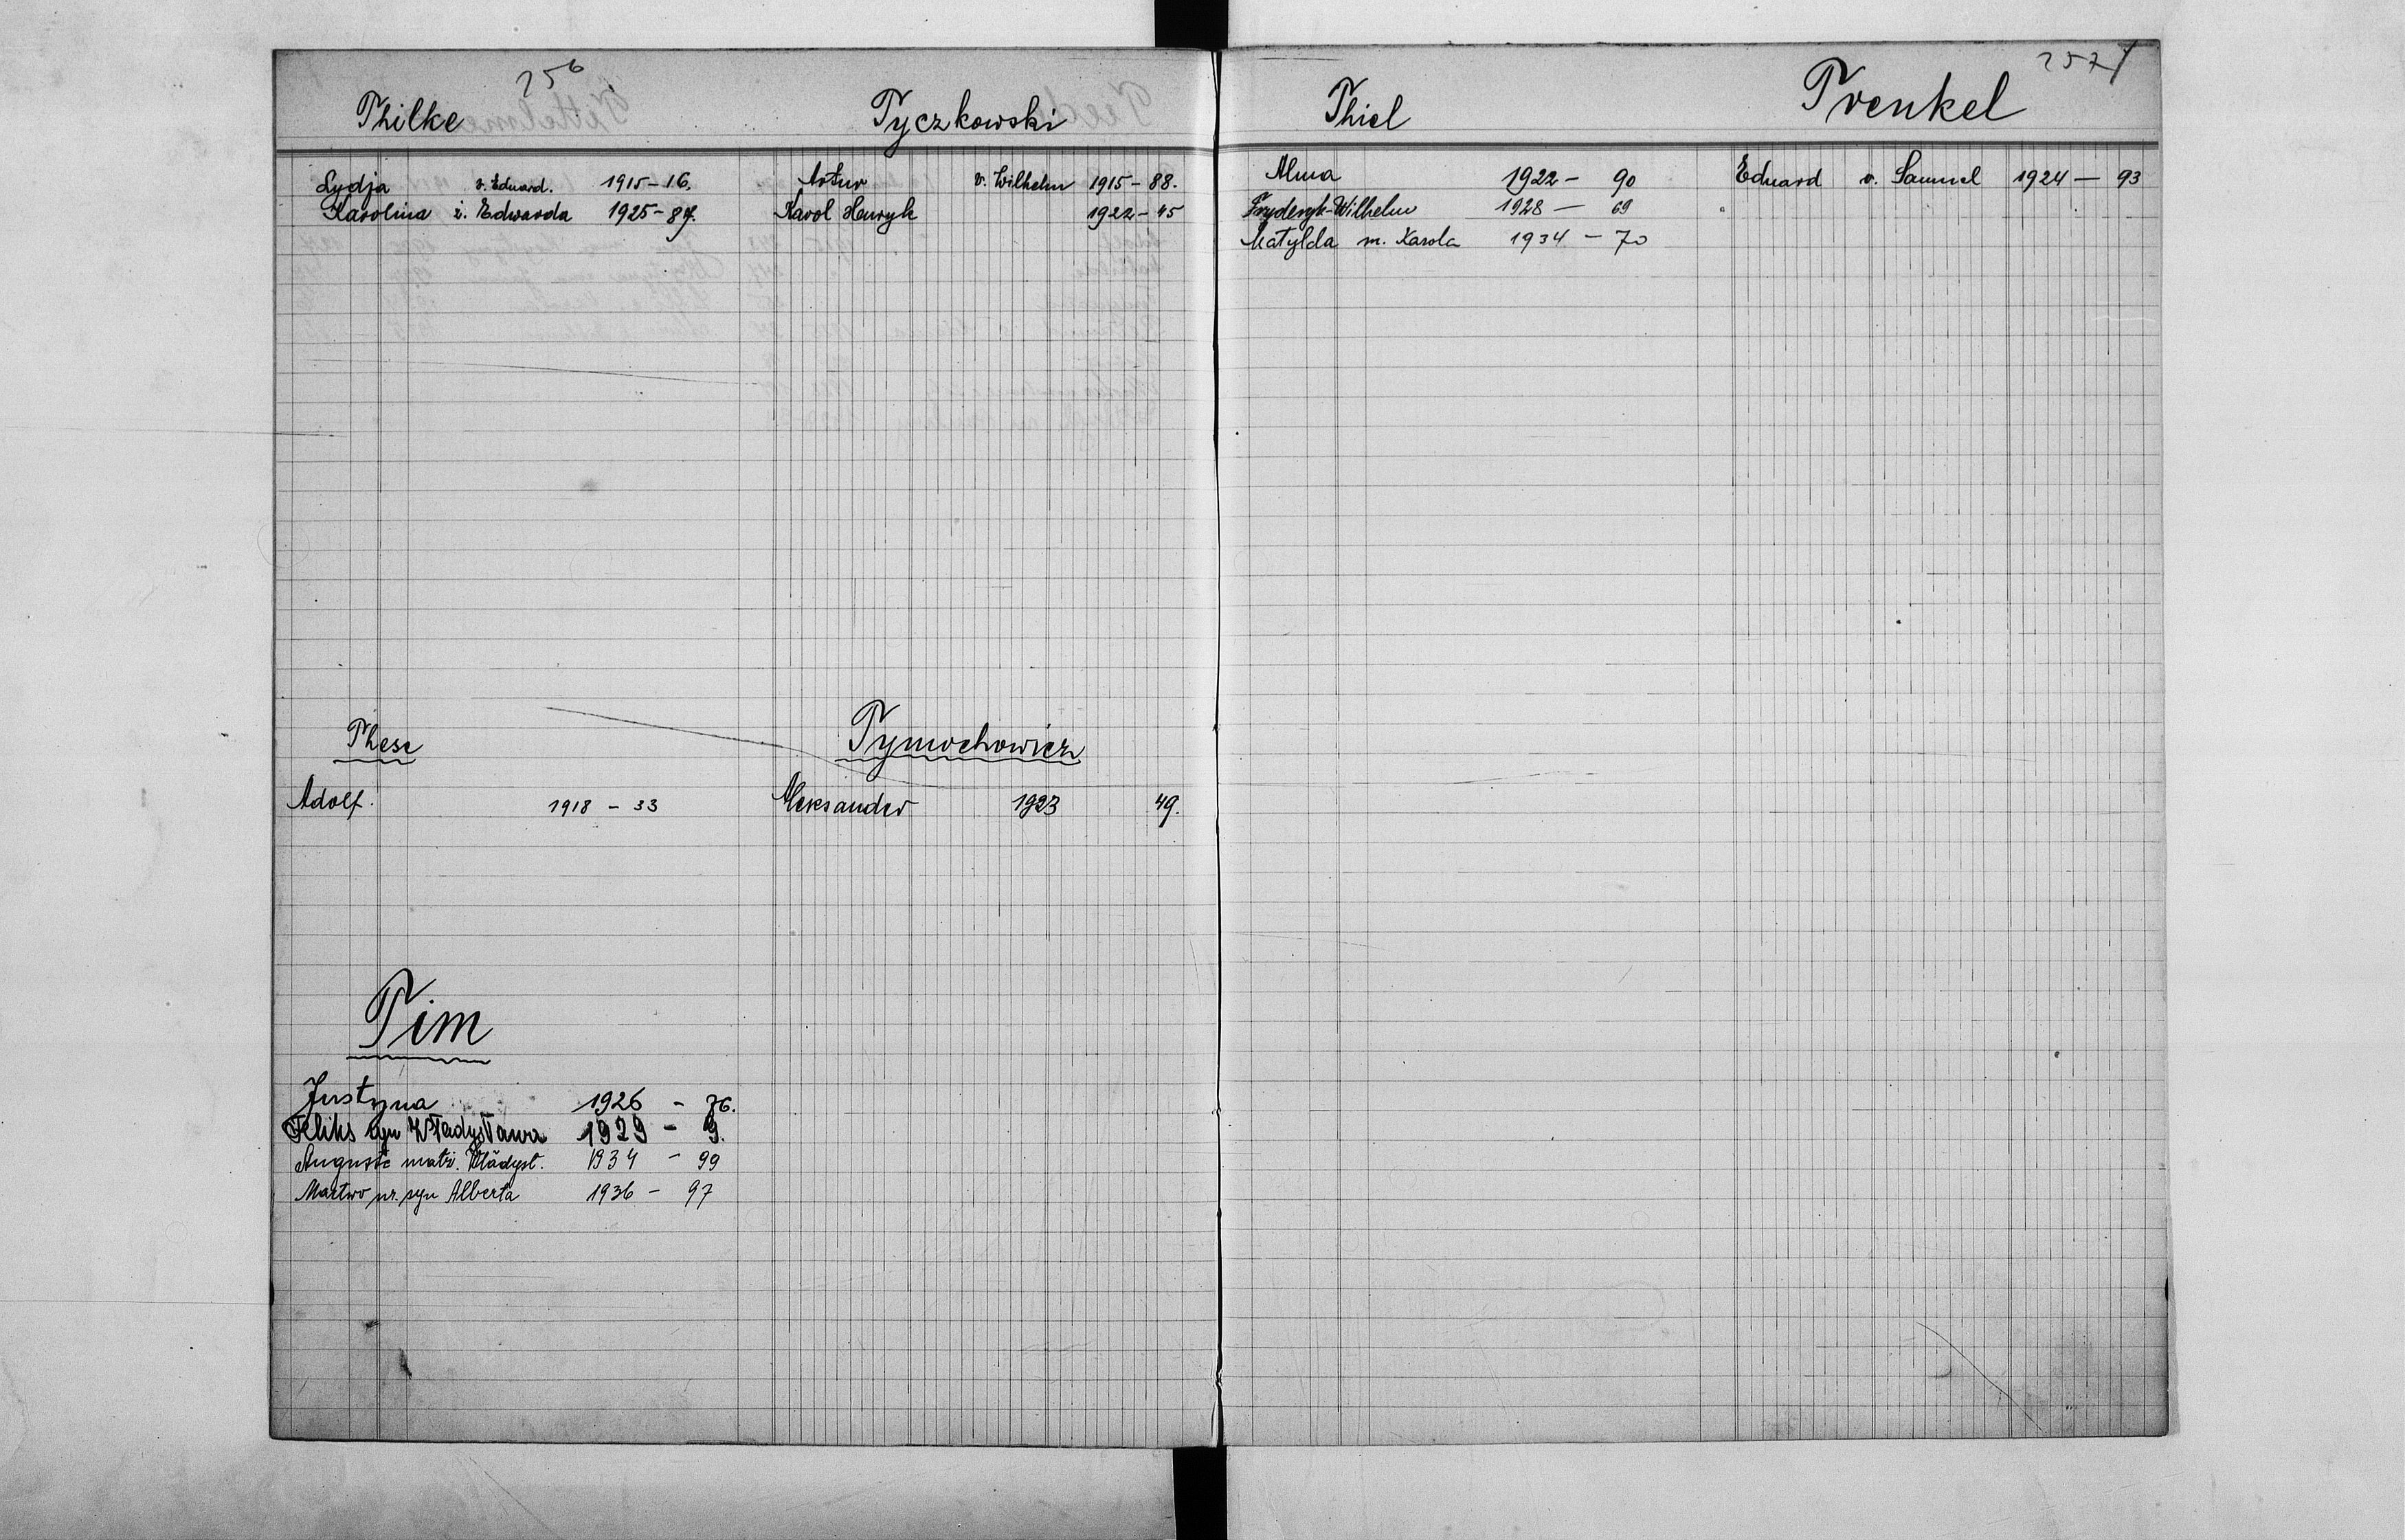 256
Thilke
Lydja v. Eduard. 1915 - 16.
Karolina ż. Edwarda 1925 - 87.
Tyczkowski
Artur v. Wilhelm 1915 - 88.
Karol Henryk 1922 - 45
These
Adolf. 1918 - 33
Tymochowicz
Aleksander 1923 49.
Tim
Justyna 1926 - 76.
Feliks syn Władysława 1929 - 9.
Auguste matr. Władysł. 1934 - 99
Martwo ur. syn Alberta 1936 - 97
257
Thiel
Alma 1922 - 90
Fryderyk-Wilhelm 1928 - 69
Matylda m. Karola 1934 - 70
Trenkel
Eduard v. Samuel 1924 - 93